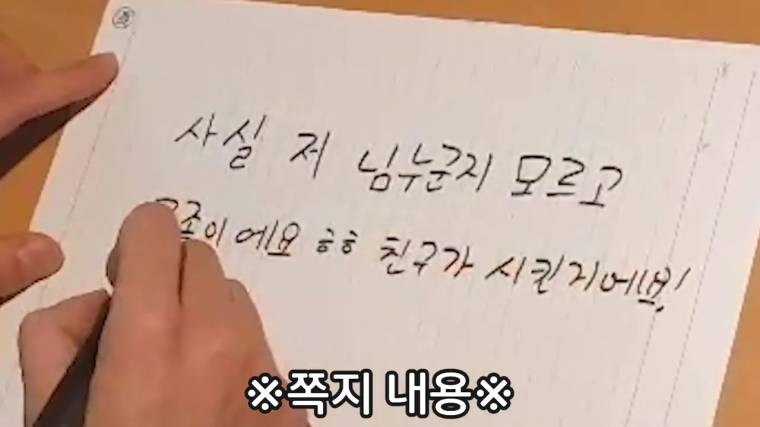 사실 저 님누군지 모르고
ㅎㅎ 친구가 시킨거에요!
※쪽지 내용※